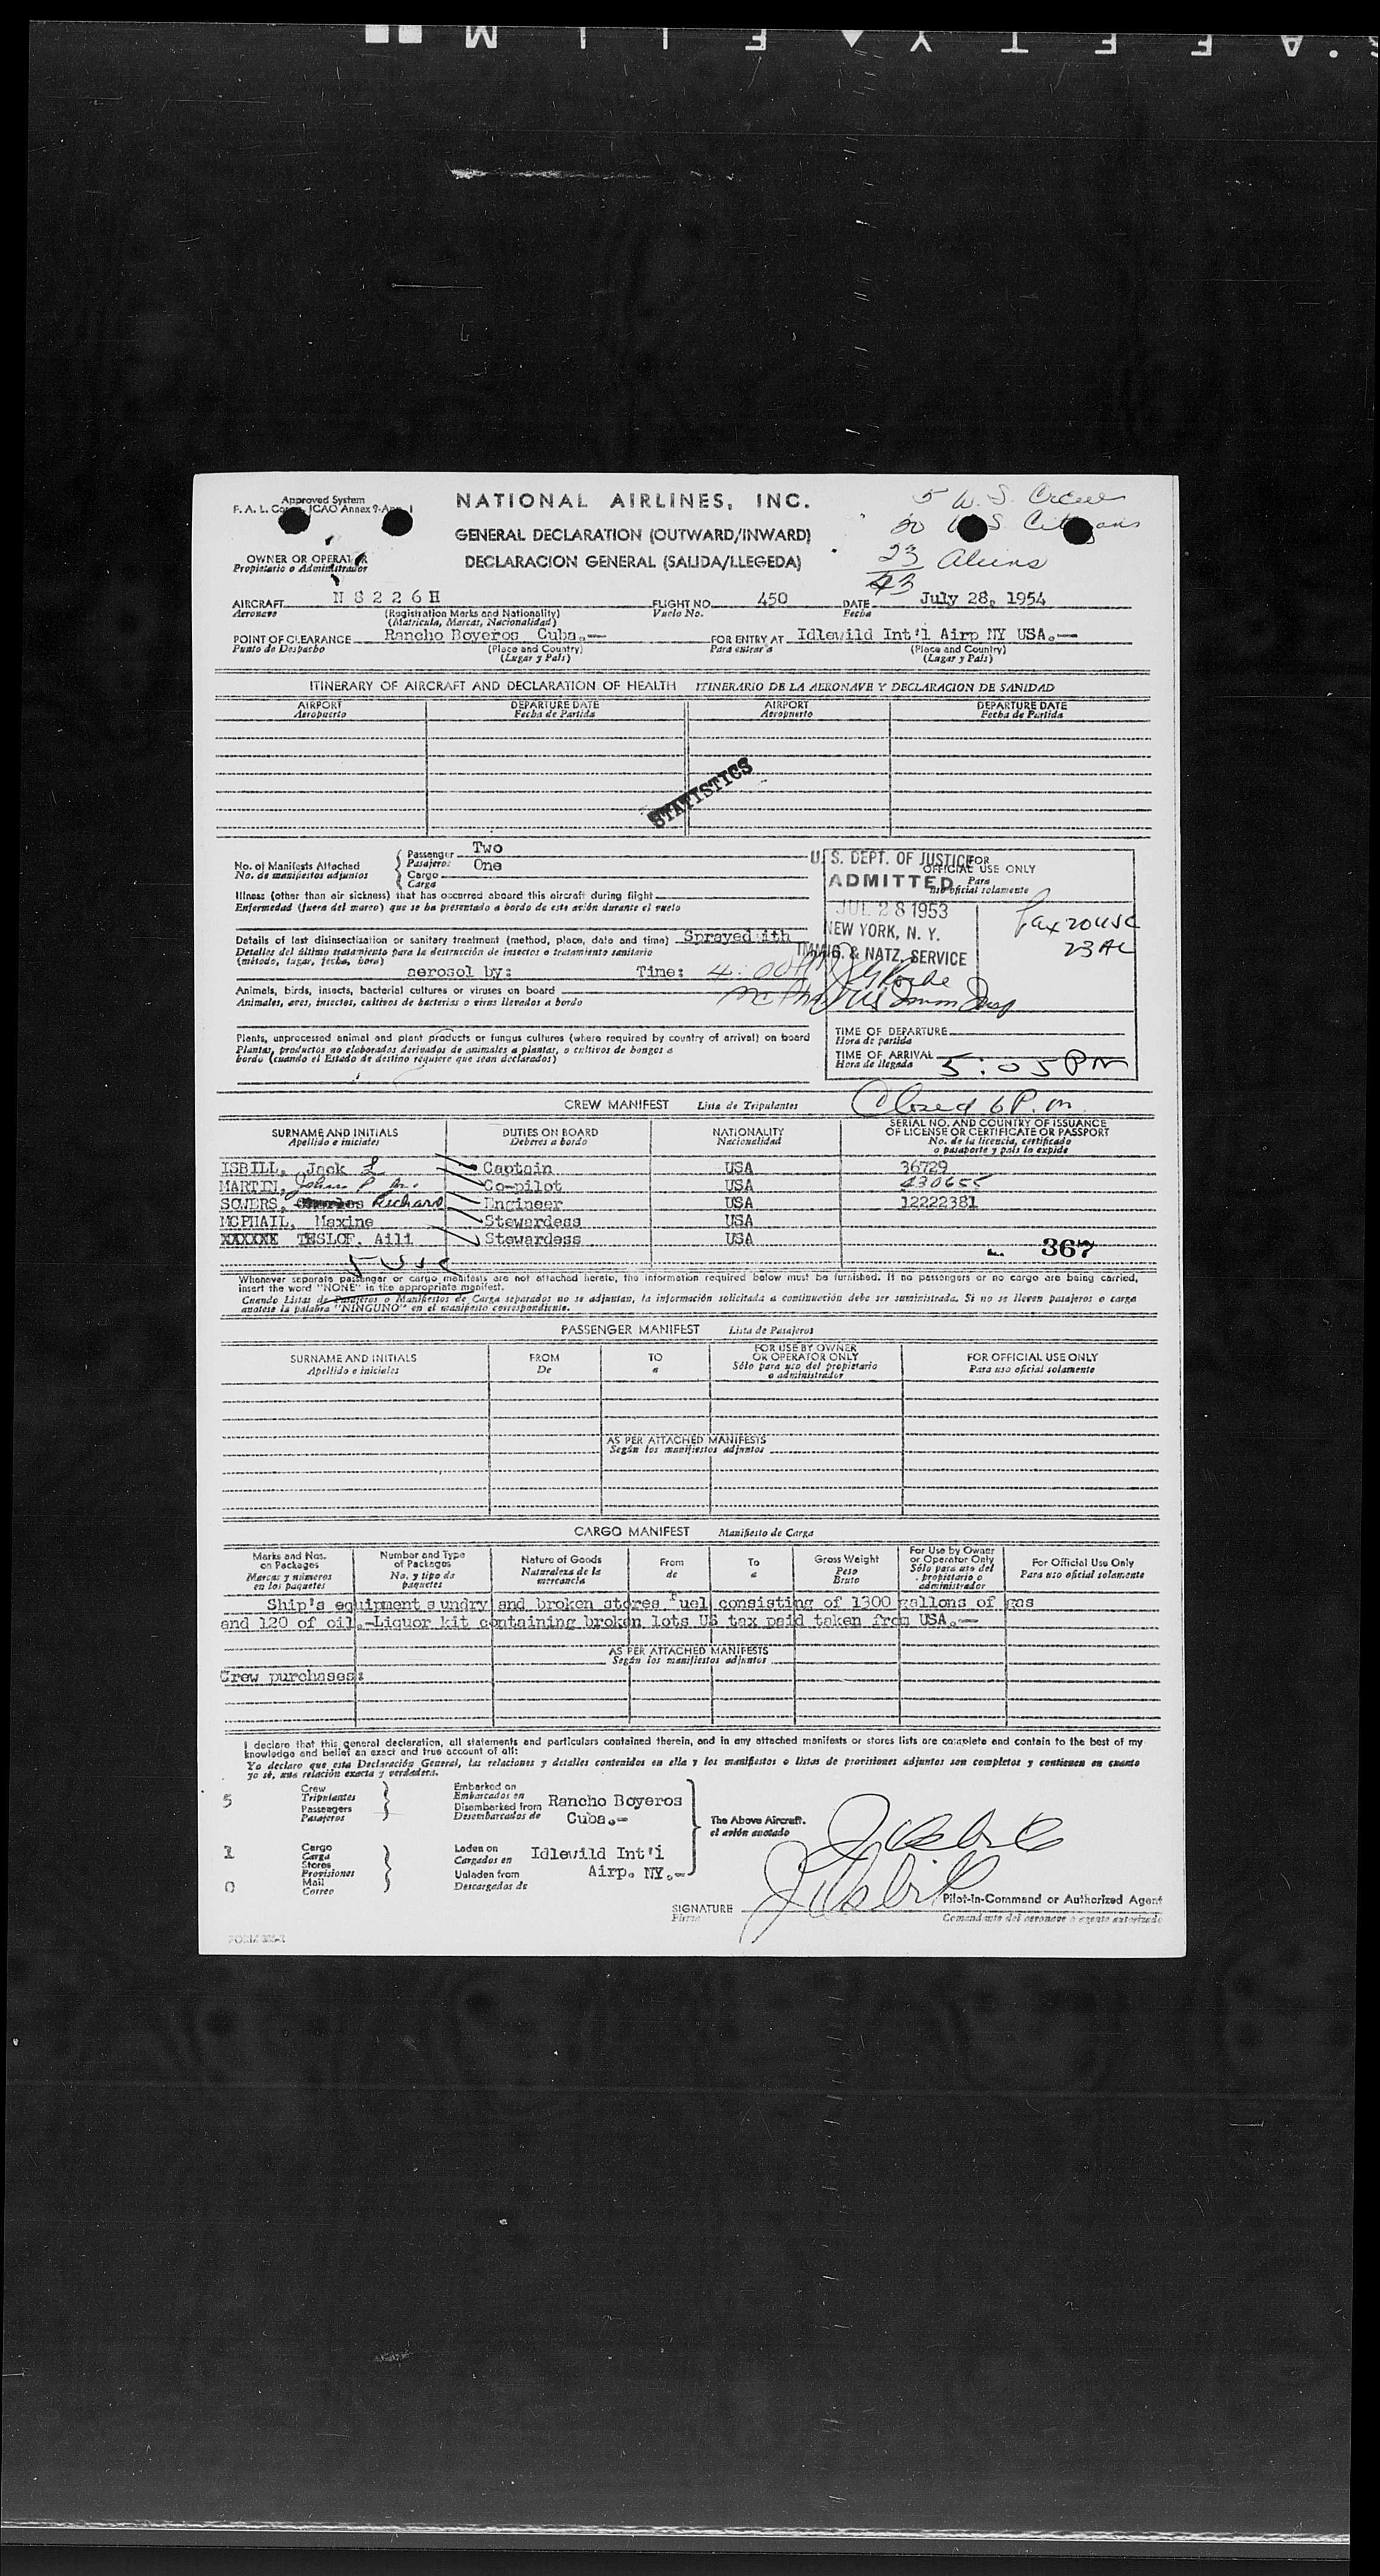 SAFETY FILM
Approved System
F. A. L. ICAO Annex 9-App. 1
NATIONAL AIRLINES, INC.
5 U.S. Crew
GENERAL DECLARATION (OUTWARD/INWARD)
20 U S Citizens
DECLARACION GENERAL (SALIDA/LLEGEDA)
23 Aliens
43
OWNER OR OPERATOR
Propietario o Administrador
AIRCRAFT N 8 2 2 6 H FLIGHT NO. 450 DATE July 28, 1954
Aeronave (Registration Marks and Nationality) Vuelo No. Fecha
(Matricula, Marcas, Nacionalidad)
POINT OF CLEARANCE Rancho Boyeros Cuba.— FOR ENTRY AT Idlewild Int'l Airp NY USA.—
Punto de Despacho (Place and Country) Para entrar a (Place and Country)
(Lugar y País) (Lugar y País)
ITINERARY OF AIRCRAFT AND DECLARATION OF HEALTH ITINERARIO DE LA AERONAVE Y DECLARACION DE SANIDAD
AIRPORT DEPARTURE DATE AIRPORT DEPARTURE DATE
Aeropuerto Fecha de Partida Aeropuerto Fecha de Partida
STATISTICS
No. of Manifests Attached Passenger Two
No. de manifiestos adjuntos Pasajero: One
Cargo
Carga
U. S. DEPT. OF JUSTICE
FOR OFFICIAL USE ONLY
ADMITTED
Para uso oficial solamente
JUL 28 1953
NEW YORK, N. Y.
IMMIG. & NATZ. SERVICE
Pax 20 USC
23 AL
Illness (other than air sickness) that has occurred aboard this aircraft during flight
Enfermedad (fuera del mareo) que se ha presentado a bordo de este avión durante el vuelo
Details of last disinsectization or sanitary treatment (method, place, date and time) Sprayed ith
Detalles del último tratamiento para la destrucción de insectos o tratamiento sanitario
(método, lugar, fecha, hora) aerosol by: Time: 4:00 PM
Animals, birds, insects, bacterial cultures or viruses on board
Animales, aves, insectos, cultivos de bacterias o virus llevados a bordo
Plants, unprocessed animal and plant products or fungus cultures (where required by country of arrival) on board
Plantas, productos no elaborados derivados de animales a plantas, o cultivos de hongos a
bordo (cuando el Estado de destino requiere que sean declarados)
TIME OF DEPARTURE
Hora de partida
TIME OF ARRIVAL 5:05 PM
Hora de llegada
CREW MANIFEST Lista de Tripulantes Closed 6 P.m.
SURNAME AND INITIALS DUTIES ON BOARD NATIONALITY SERIAL NO. AND COUNTRY OF ISSUANCE
OF LICENSE OR CERTIFICATE OR PASSPORT
Apellido e iniciales Deberes a bordo Nacionalidad No. de la licencia, certificado
o pasaporte y país lo expide
ISBILL, Jack L Captain USA 36729
MARTIN, John P Co-pilot USA 430655
SOWERS, Charles Richard Engineer USA 12222381
MCPHAIL, Maxine Stewardess USA
XXXXXX TESLOF, Aili Stewardess USA
5 USC
367
Whenever separate passenger or cargo manifests are not attached hereto, the information required below must be furnished. If no passengers or no cargo are being carried,
insert the word "NONE" in the appropriate manifest.
Cuando Listas de Pasajeros o Manifiestos de Carga separados no se adjuntan, la información solicitada a continuación debe ser suministrada. Si no se lleven pasajeros o carga
anotese la palabra "NINGUNO" en el manifiesto correspondiente.
PASSENGER MANIFEST Lista de Pasajeros
SURNAME AND INITIALS FROM TO FOR USE BY OWNER OR OPERATOR ONLY FOR OFFICIAL USE ONLY
Apellido e iniciales De a Sólo para uso del propietario o administrador Para uso oficial solamente
AS PER ATTACHED MANIFESTS
Según los manifiestos adjuntos
CARGO MANIFEST Manifiesto de Carga
Marks and Nos. on Packages Number and Type of Packages Nature of Goods From To Gross Weight For Use by Owner or Operator Only For Official Use Only
Marcas y números en los paquetes No. y tipo de paquetes Naturaleza de la mercancía de a Peso Bruto Sólo para uso del propietario o administrador Para uso oficial solamente
Ship's equipment sundry and broken stores Fuel consisting of 1300 gallons of gas
and 120 of oil.—Liquor kit containing broken lots US tax paid taken from USA.—
AS PER ATTACHED MANIFESTS
Según los manifiestos adjuntos
Crew purchases:
I declare that this general declaration, all statements and particulars contained therein, and in any attached manifests or stores lists are complete and contain to the best of my
knowledge and belief an exact and true account of all:
Yo declaro que esta Declaración General, las relaciones y detalles contenidos en ella y los manifiestos o listas de provisiones adjuntos son completos y contienen en cuanto
yo sé, una relación exacta y verdadera.
5 Crew Embarked on
Tripulantes Embarcados en Rancho Boyeros
Passengers Disembarked from Cuba.—
Pasajeros Desembarcados de
The Above Aircraft.
el avión anotado
1 Cargo Laden on Idlewild Int'l
Carga Cargados en
Stores
Provisiones Unladen from Airp. NY.—
0 Mail Descargados de
Correo
J Isbill
J Isbill
SIGNATURE Pilot-in-Command or Authorized Agent
Firma Comandante del aeronave o agente autorizado